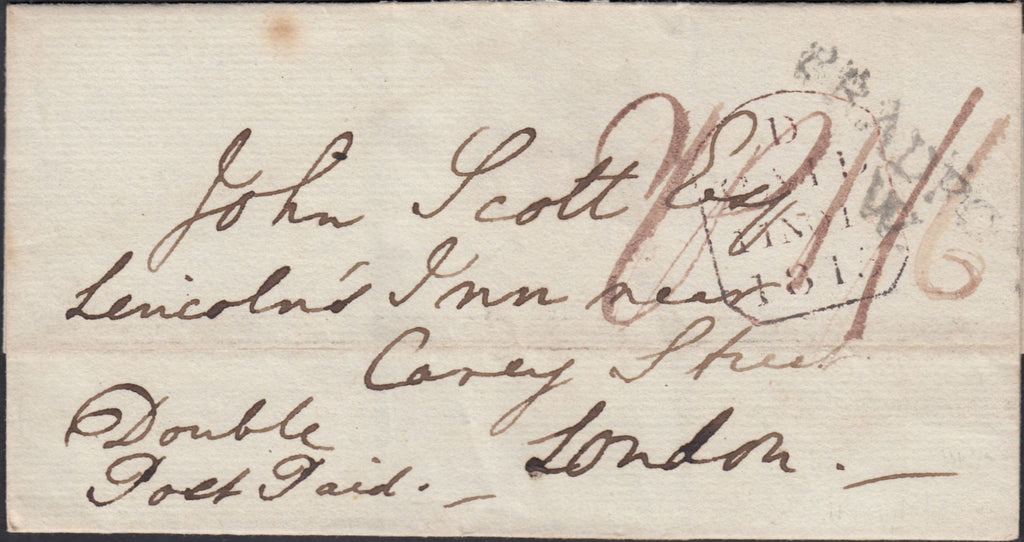 John Scott Esq
Lincoln's Inn near
Carey Street
London.
Double
Post Paid.
D
PAID
181
1/6